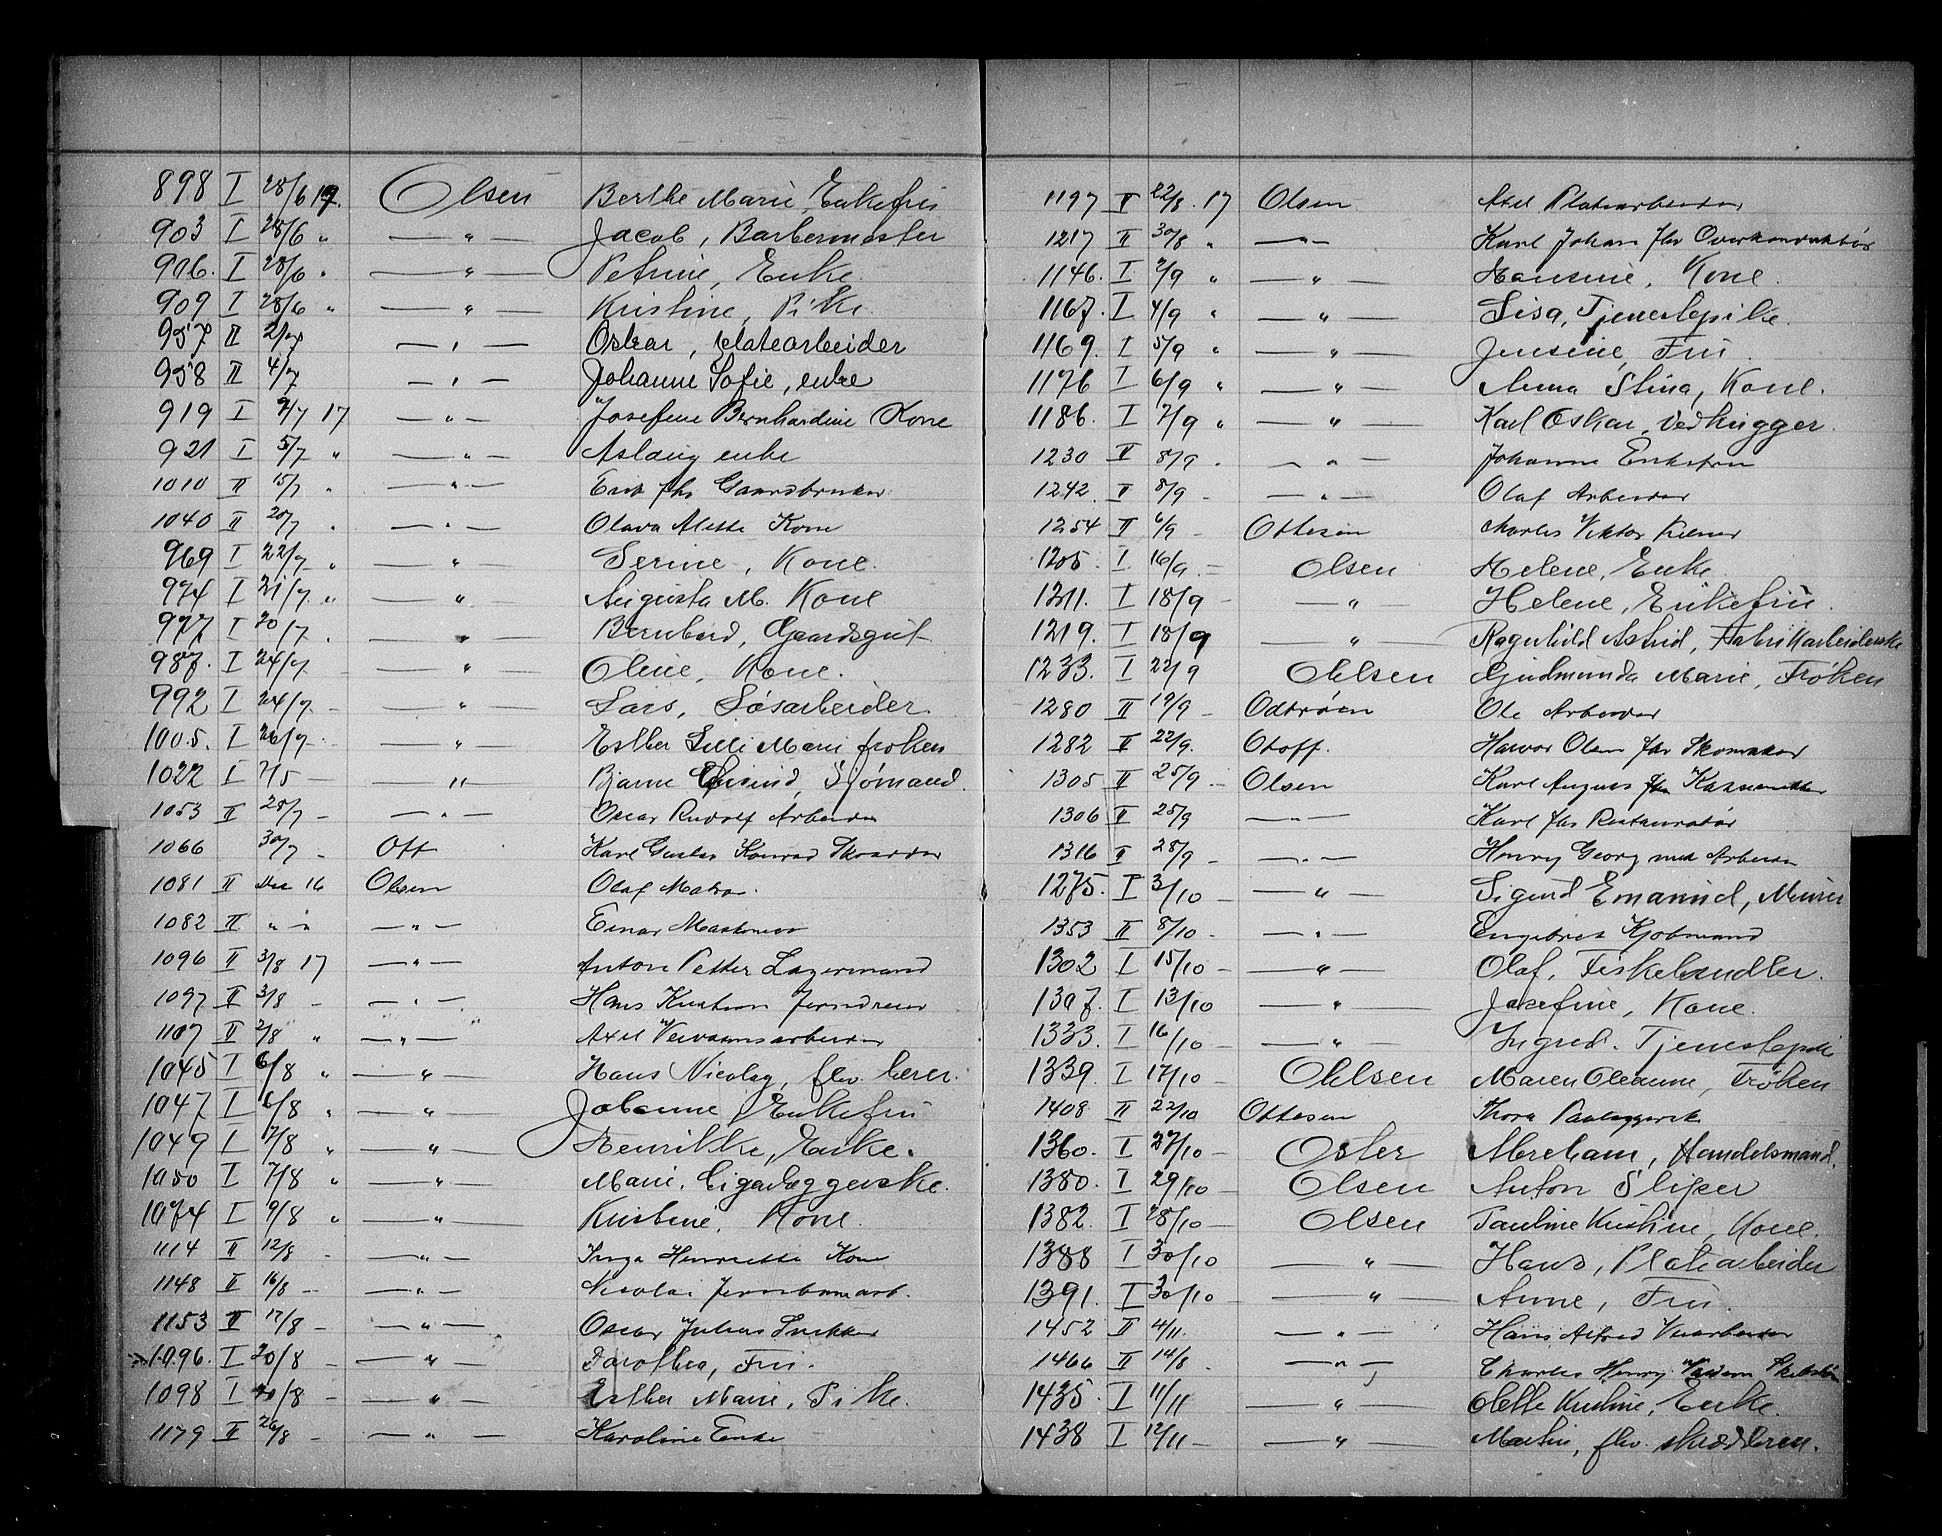 898 I 28/6 17. Olsen Berthe Marie, Enkefru
903 I 28/6 " — " — Jacob, Barbermester
906. I 28/6 " — " — Petrine, Enke.
909 I 28/6 " — " — Kristine, Pike.
957 II 2/7 — " — Oskar, platearbeider
958 II 4/7 — " — Johanne Sofie, enke
919 I 2/7 17 — " — Josefine Bernhardine Kone
921 I 5/7 " — " — Aslaug enke
1010 II 15/7 " — " — Gaardbruker
1040 II 20/7 " — " — Olava Alette Kone
969 I 22/7 " — " — Serine, Kone.
974 I 21/7 " — " — Augusta M. Kone
977 I 20/7. — " — Bernhard, Gaardsgut
987. I 24/7 — " — Oline, Kone.
992 I 24/7 — — " — Lars, Løsarbeider.
1005. I 26/7 — — " — Esther Lilli Marie frøken
1022 I 7/5 — — " — Bjarne Sjømand.
1053 II 28/7 — — " — Oscar Rudolf Arbeider
1066 30/7 — Ott Karl Gustav Konrad Skrædder
1081 II Des 16 Olsen Olaf Matros.
1082 II " — " — " — Einar
1096 II 3/8 17 — " — Anton Petter Lagermand
1097 II 3/8 — — " — Hans Kristian Jerndreier
1107 II 2/8 " — " — Axel Veivæsensarbeider
1045 I 6/8 " — " — Hans Nicolay, flv. lærer.
1047 I 6/8 " — " — Johanne, Enkefru
1049 I 17/8 " — " — Henrikke, Enke.
1050 I 7/8 " — " — Marie, Cigarlæggerske.
1074 I 9/8 " — " — Kristine, Kone.
1114 II 12/8 — — " — Inga Henriette Kone
1148 II 16/8 — — " — Nicolai Jernbanearb.
1153 II 17/8 — — " — Oscar Julius Snekker
1096. I 20/8 — — " — Dorothea, Fru.
1098 I 20/8 — — " — Esther Marie, Pike.
1179 II 26/8 — — " — Karoline Enke
1197 II 22/8. 17 Olsen Axel Platearbeider
1217 II 30/8 " — " — Karl Johan fhv Overkonduktør
1146. I 2/9 " — " — Hansine, Kone.
1167. I 4/9 " — " — Lisa, Tjenestepike.
1169. I 5/9 " — " — Jensine, Fru.
1176 I 6/9 " — " — Anna Stina, Kone.
1186. I 7/9 " — " — Karl Oskar, Vedhugger.
1230 II 8/9. — " — Johanne Enkefru
1242. II 8/9 — — " — Olaf Arbeider
1254 II 6/9 — Ottesen Charles Viktor Kelner
1205. I. 16/9. — Olsen Helene, Enke
1211. I 18/9 — — " — Helene, Enkefru.
1219. I 18/9 — " — Ragnhild Astrid, Fabrikarbeiderske
1233. I 22/9 Ohlsen Gudmunda Marie, Frøken
1280 II 19/9 — Odtrøen Ole Arbeider
1282 II 22/9. Otoff. Halvor Olsen fhv Skomaker
1305 II 25/9 — Olsen Karl August fhv
1306 II 25/9 — " — Karl fhv Restauratør
1316 II 28/9 — — " — Henry Georg Arbeider
1275. I 3/10 — — " — Sigurd Emanuel, Murer
1353 II 8/10 — — " — Engebret Kjøbmand
1302 I 15/10 — — " — Olaf, Fiskehandler.
1307. I 13/10 — " — Josefine, Kone.
1333. I 16/10 — — " — Ingrid. Tjenestepike
1339. I 17/10 — Ohlsen Maren Oleanne, Frøken
1408 II 22/10 Ottesen Thora
1360. I 27/10 — Osler Abraham, Handelsmand.
1380. I 29/10 — Olsen Anton Sliper
1382. I 28/10 — Olsen Pauline Kristine, Kone.
1388 I 30/10 — " — Hans, Platearbeider
1391. I 30/10 — — " — Anne, Fru.
1452 II 4/11. — " — Hans Alfred
1466 II 14/8. — " — Charles Henry
1435. I 11/11 — " — Olette Kristine, Enke.
1438 I 12/11 — — " — Martin, flv. skrædderm.